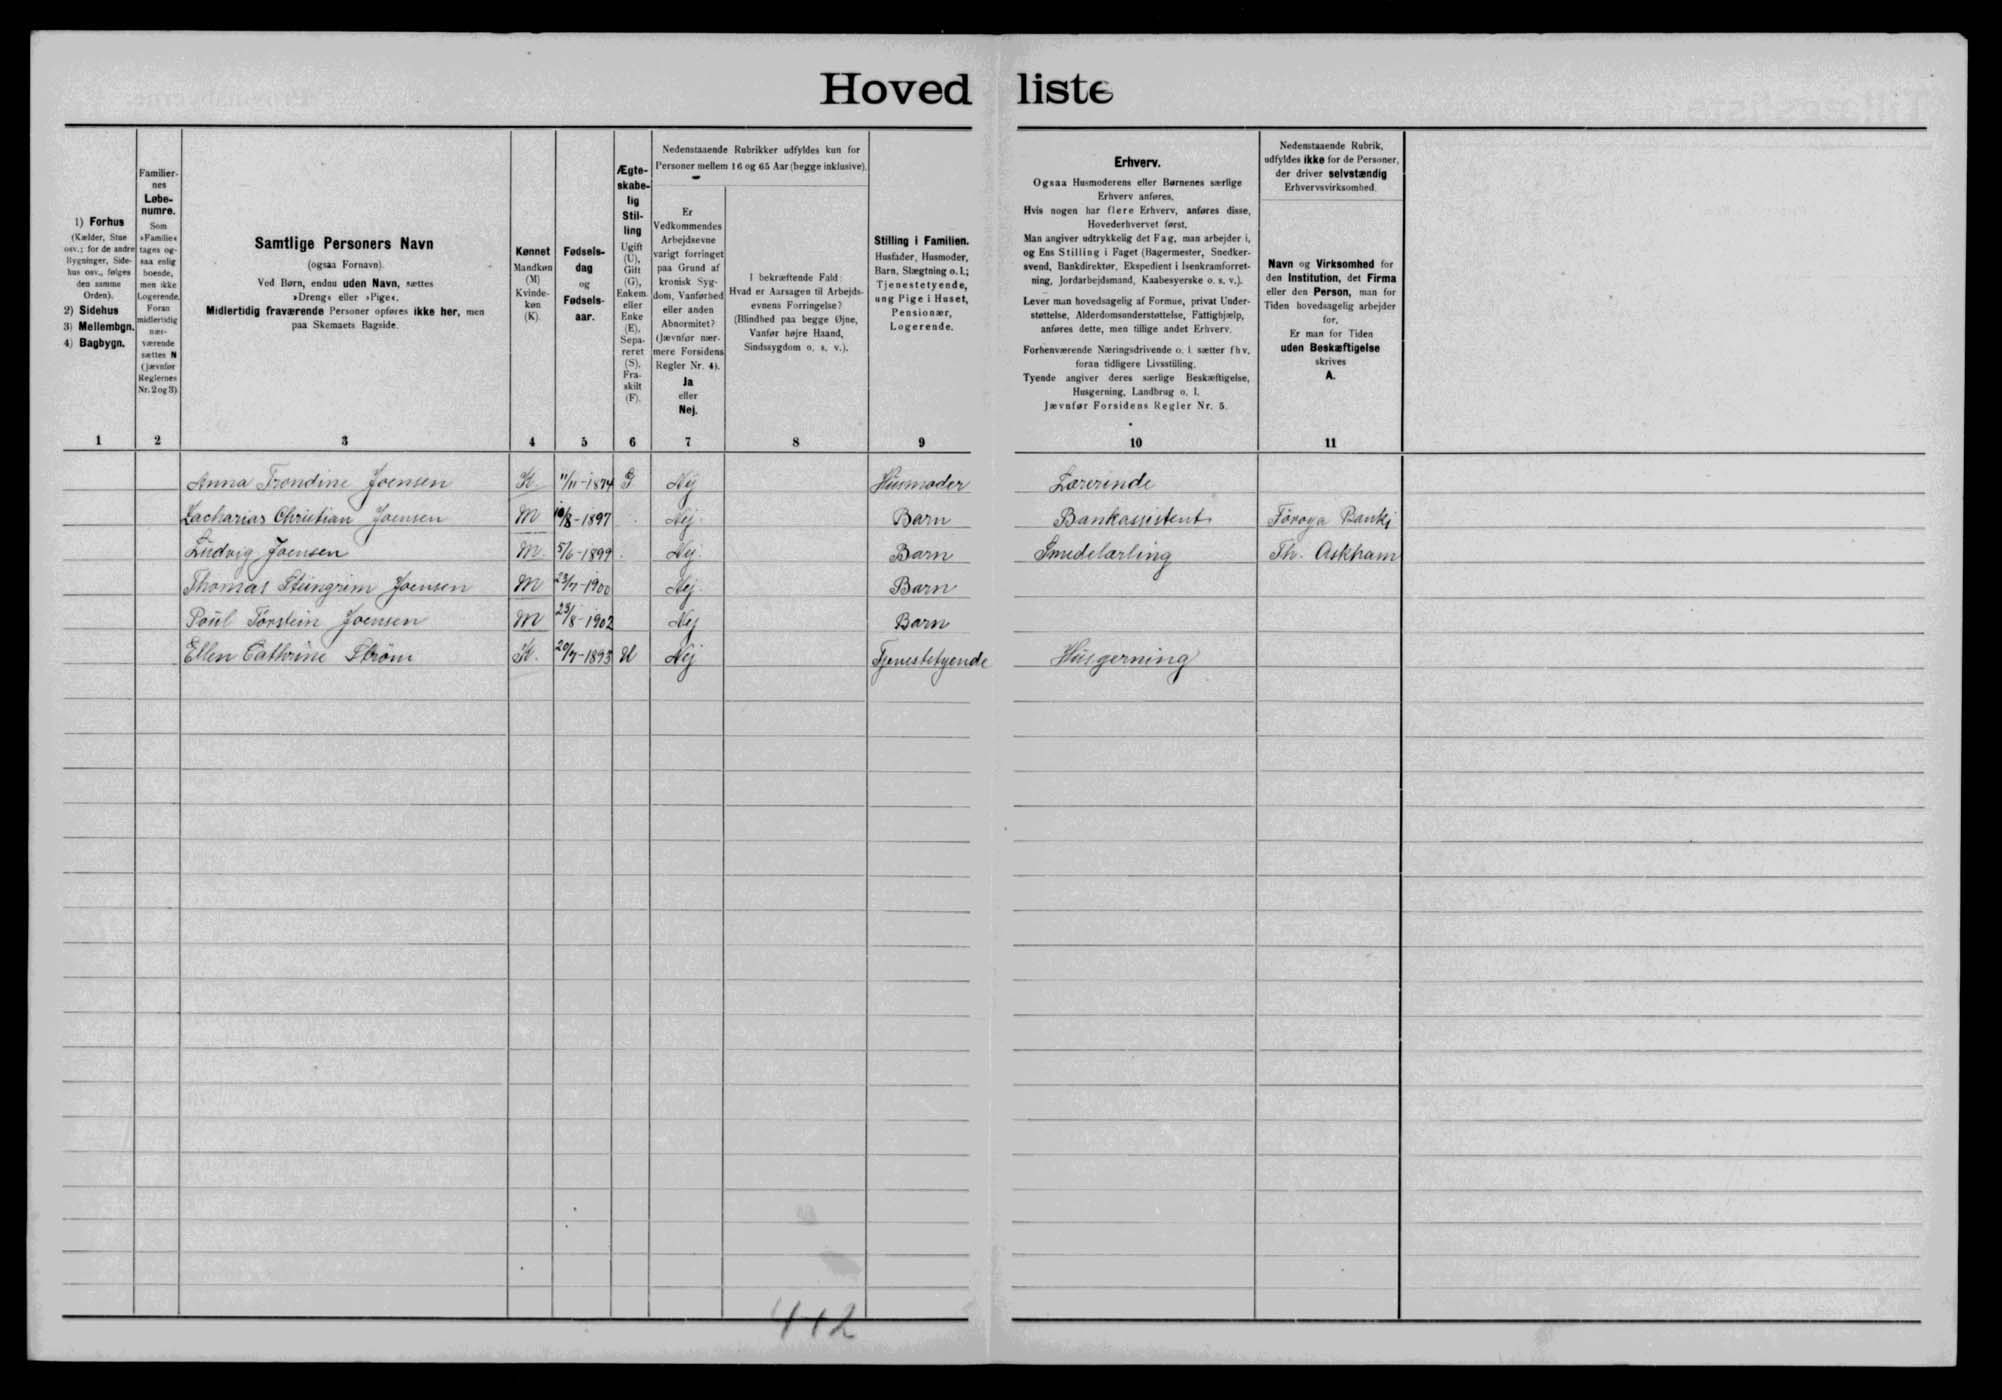 Hovedliste
1) Forhus
(Kælder, Stue
osv.; for de andre
Bygninger, Side-
hus osv., følges
den samme
Orden).
2) Sidehus
3) Mellembgn.
4) Bagbygn.
Familier-
nes
Løbe-
numre.
Som
»Familie«
tages og-
saa enlig
boende,
men ikke
Logerende.
Foran
midlertidig
nær-
værende
sættes N
(jævnfør
Reglernes
Nr. 2 og 3)
Samtlige Personers Navn
(ogsaa Fornavn).
Ved Børn, endnu uden Navn, sættes
»Dreng« eller »Pige«.
Midlertidig fraværende Personer opføres ikke her, men
paa Skemaets Bagside.
Kønnet
Mandkøn
(M)
Kvinde-
køn
(K).
Fødsels-
dag
og
Fødsels-
aar.
Ægte-
skabe-
lig
Stil-
ling
Ugift
(U),
Gift
(G),
Enkem.
eller
Enke
(E),
Sepa-
reret
(S),
Fra-
skilt
(F).
Nedenstaaende Rubrikker udfyldes kun for
Personer mellem 16 og 65 Aar (begge inklusive).
Er
Vedkommendes
Arbejdsevne
varigt forringet
paa Grund af
kronisk Syg-
dom, Vanførhed
eller anden
Abnormitet?
(Jævnfør nær-
mere Forsidens
Regler Nr. 4).
Ja
eller
Nej.
I bekræftende Fald:
Hvad er Aarsagen til Arbejds-
evnens Forringelse?
(Blindhed paa begge Øjne,
Vanfør højre Haand,
Sindssygdom o. s. v.).
Stilling i Familien.
Husfader, Husmoder,
Barn, Slægtning o. l.;
Tjenestetyende,
ung Pige i Huset,
Pensionær,
Logerende.
Erhverv.
Ogsaa Husmoderens eller Børnenes særlige
Erhverv anføres.
Hvis nogen har flere Erhverv, anføres disse,
Hovederhvervet først.
Man angiver udtrykkelig det Fag, man arbejder i,
og Ens Stilling i Faget (Bagermester, Snedker-
svend, Bankdirektør, Ekspedient i Isenkramforret-
ning, Jordarbejdsmand, Kaabesyerske o. s. v.).
Lever man hovedsagelig af Formue, privat Under-
støttelse, Alderdomsunderstøttelse, Fattighjælp,
anføres dette, men tillige andet Erhverv.
Forhenværende Næringsdrivende o. l. sætter fhv.
foran tidligere Livsstilling.
Tyende angiver deres særlige Beskæftigelse,
Husgerning, Landbrug o. l.
Jævnfør Forsidens Regler Nr. 5.
Nedenstaaende Rubrik,
udfyldes ikke for de Personer,
der driver selvstændig
Erhvervsvirksomhed.
Navn og Virksomhed for
den Institution, det Firma
eller den Person, man for
Tiden hovedsagelig arbejder
for.
Er man for Tiden
uden Beskæftigelse
skrives
A.
1 2 3 4 5 6 7 8 9 10 11
Anna Trondine Joensen K. 11/11-1874 G Nej Husmoder Lærerinde
Zacharias Christian Joensen M 10/8-1897 Nej. Barn Bankassistent Föroya Banki
Ludvig Joensen M. 5/6-1899 Nej. Barn Smedelærling Th. Askham
Thomas Steingrim Joensen M 23/7-1900 Nej. Barn
Poul Torstein Joensen M 23/8-1902 Nej Barn
Ellen Cathrine Ström K. 20/7-1893 U Nej Tjenestetyende Husgerning
442